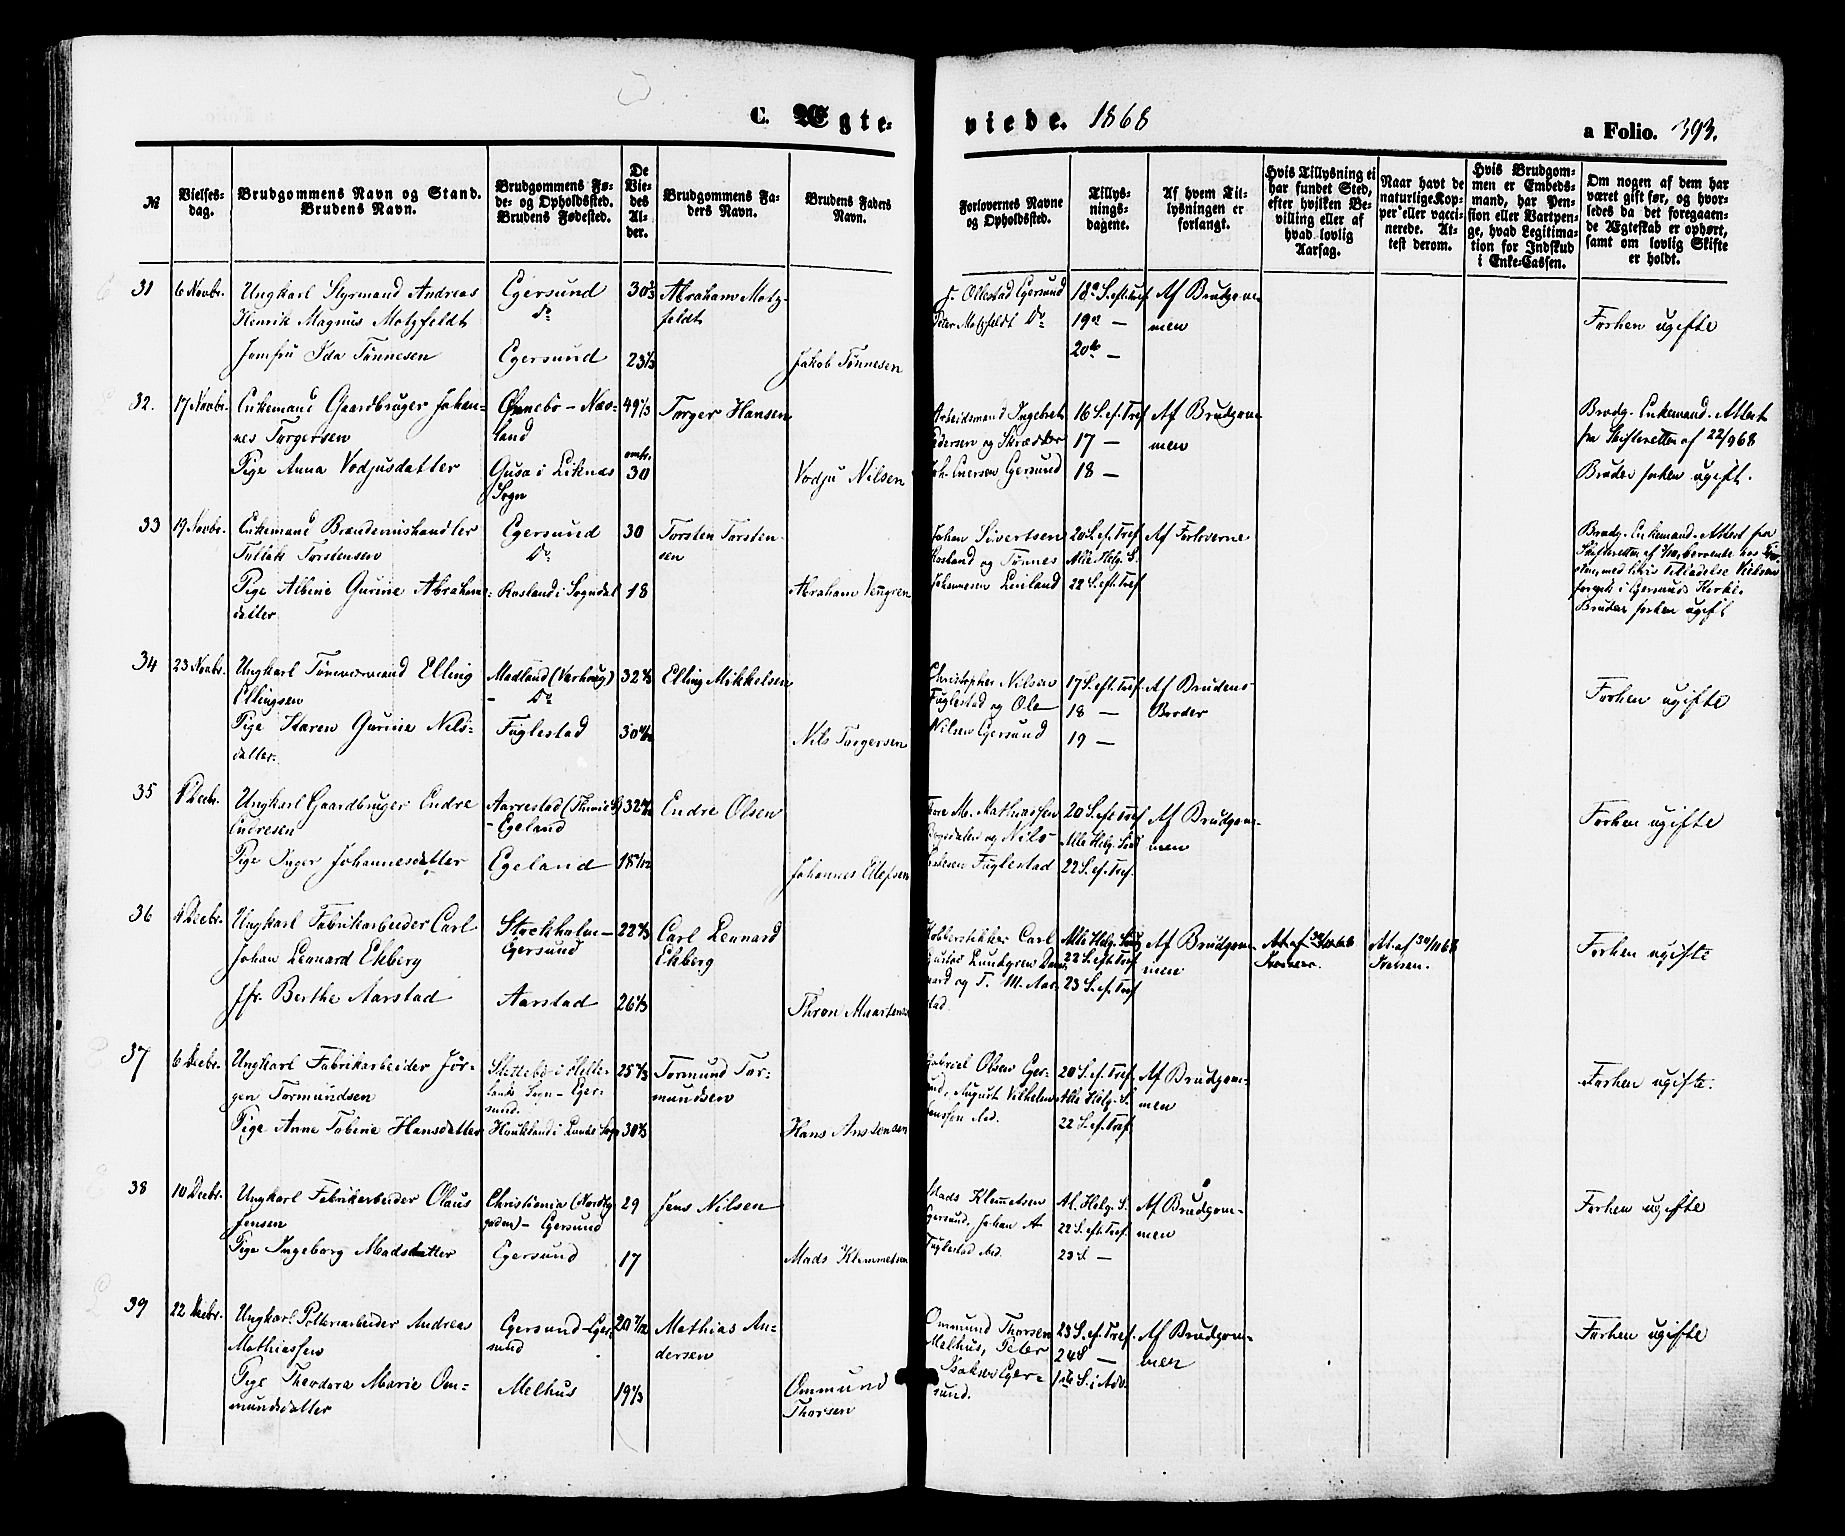 C. Ægte-
viede. 1868
a Folio. 393.
№
Vielses-
dag.
Brudgommens Navn og Stand.
Brudens Navn.
Brudgommens Fø-
de- og Opholdsted.
Brudens Fødested.
De
Vie-
des
Al-
der.
Brudgommens Fa-
ders Navn.
Brudens Faders
Navn.
Forlovernes Navne
og Opholdssted.
Tillys-
nings-
dagene.
Af hvem Til-
lysningen er
forlangt.
Hvis Tillysning ei
har fundet Sted,
efter hvilken Be-
villing eller af
hvad lovlig
Aarsag.
Naar havt de
naturlige Kop-
per eller vacci-
nerede. At-
test derom.
Hvis Brudgom-
men er Embeds-
mand, har Pen-
sion eller Vartpen-
ge, hvad Legitima-
tion for Indskud
i Enke-Cassen.
Om nogen af dem har
været gift før, og hvor-
ledes da det foregaaen-
de Ægteskab er ophørt,
samt om lovlig Skifte
er holdt.
31
6 Novbr.
Ungkarl Styrmand Andreas
Henrik Magnus Motzfeldt
Jomfru Ida Tønnesen
Egersund
Do
Egersund
Abraham Motz-
feldt
Jakob Tønnesen
Ollestad Egersund
Peter Motzfeldt Do
Af Brudgom-
men
Forhen ugifte
32.
17 Novbr.
Enkemand Gaardbruger Johan-
nes Torgersen
Pige Anna Vodjusdatter
Gusa i Liknes
Sogn
49 1/3
omtr.
30
Torger Hansen
Vodju Nilsen
Arbeidsmand Ingebret
Pedersen og Skrædder
Joh. Iversen Egersund
16 S. ef. Tref
17 —
18 —
Af Brudgom-
men
Brudg. Enkemand. Attest
fra Skifteretten af 22/9 68
Bruden forhen ugift.
33
19 Novbr.
Enkemand Brændevinshandler
Tollak Torstensen
Pige Albine Gurine Abraham-
datter
Egersund
Do
Rosland i Sogndal
30
18
Torsten Torsten-
sen
Abraham
Johan Sivertsen
Rosland og Tønnes
20 S. ef. Tref
Alle Helg. S.
22 S. eft. Tref
Af Forloverne
Brudg. Enkemand. Attest fra
Bruden forhen ugift
34
23 Novbr.
Ungkarl Elling
Ellingsen
Pige Karen Gurine Nils-
datter.
Madland (Varhoug)
- Do
Fuglestad
Elling Mikkelsen
Nils Torgersen
Christopher Nilsen
Fuglestad og Ole
Nilsen Egersund
17 S. eft. Tref
18 —
19 —
Af Brudens
Broder
Forhen ugifte
35
1 Decbr.
Ungkarl Gaardbruger Endre
Endresen
Pige Inger Johannesdatter
- Egeland
Egeland
Endre Olsen
Johannes Ellefsen
Tore M. Mathiassen
og Nils
Fuglestad
20 S. eft Tref
Alle Helg. Sønd
22 S. ef. Tref.
Af Brudgom-
men
Forhen ugifte
36
1 Decbr.
Ungkarl Fabrikarbeider Carl
Johan Lennard Ekberg
Jfr. Berthe Aarstad
Stockholm -
Egersund
Aarstad
Carl Lennard
Ekberg
Thron Maartensen
Kobberstikker Carl
Gustav Lundgren
og T. M. Aar-
stad
Alle Helg. Sønd
22 S. eft. Tref
23 S. ef. Tref
Af Brudgom-
men
At. af 30/11 68
At. af 30/11 68
Forhen ugifte
37
6 Decbr.
Ungkarl Fabrikarbeider Jør-
gen Tormundsen
Pige Anne Tobine Hansdatter
Slettebø i Helle-
lands Sogn - Eger-
sund.
Tormund Tor-
mundsen
Hans
Gabriel Olsen Eger-
sund, August Vilhelm
20 S. ef. Tref
Alle Helg. S.
22 S. ef. Tref
Af Brudgom-
men
Forhen ugifte.
38
10 Decbr.
Ungkarl Fabrikarbeider Olaus
Jensen
Pige Ingeborg Madsdatter
- Egersund
Egersund
29
17
Jens Nilsen
Mads Klemmetsen
Mads Klemetsen
Egersund, Johan A
Fuglestad ibd.
Al. Helg. S.
22 S. eft. Tref.
23 S —
Af Brudgom-
men
Forhen ugifte
39
22 Decbr.
Ungkarl Pottemarbeider Andreas
Mathiassen
Pige Theodora Marie Om-
mundsdatter
Egersund - Eger-
sund
Melhus
20 7/12
19 1/3
Mathias An-
dersen
Ommund
Thorsen
Ommund Thorsen
Melhus, Peter
Isaksen Eger-
sund.
23 S. ef. Tref.
24 S —
1ste S. i Adv.
Af Brudgom-
men
Forhen ugifte